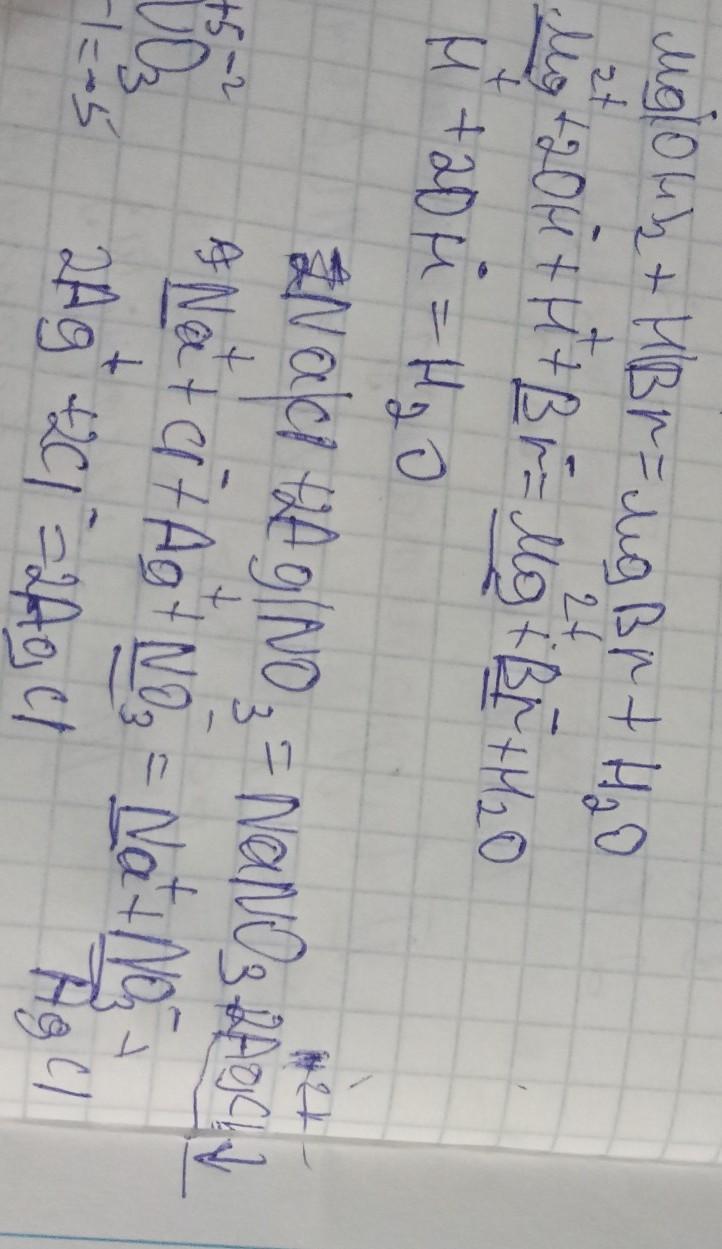 Mg(OH)2 + HBr = MgBr + H2O
Mg2+ + 2OH- + H+ + Br- = Mg2+ + Br- + H2O
H+ + 2OH- = H2O
NaCl + 2AgNO3 = NaNO3 + 2AgCl↓
Na+ + Cl- + Ag+ + NO3- = Na+ + NO3- +
AgCl
2Ag+ + 2Cl- = 2AgCl
+5 -2
O3
-1 = -5